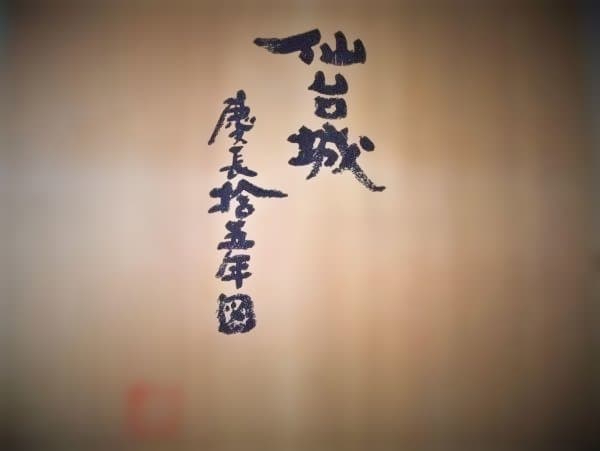 仙台城
慶長拾五年図